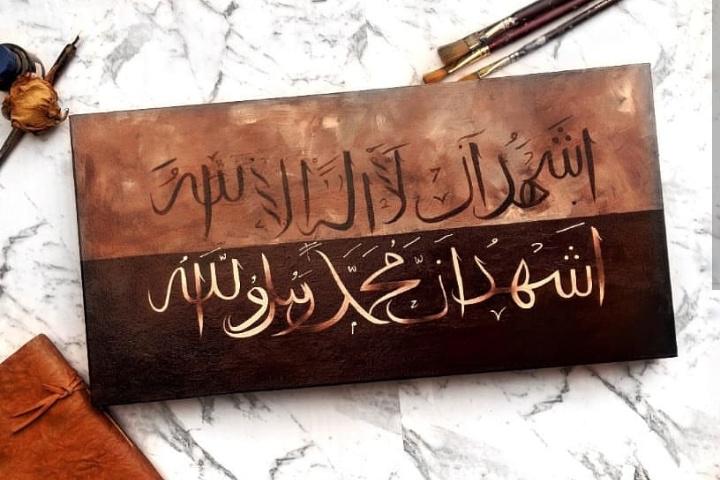 اشهد ان لا اله الا الله
اشهد ان محمد رسول الله